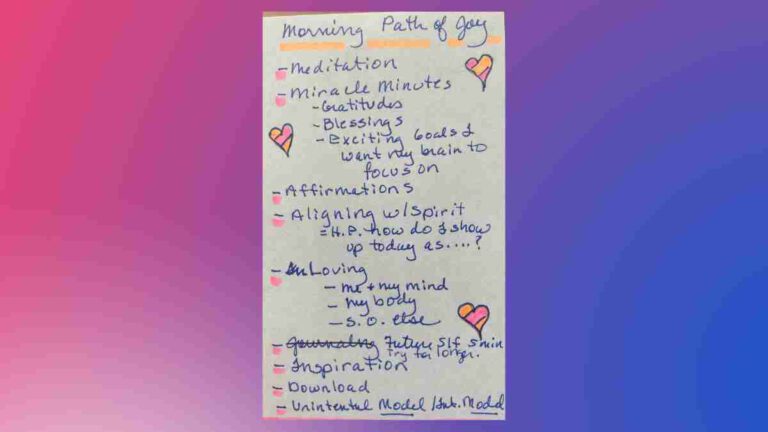 Morning Path of Joy
- Meditation
- Miracle Minutes
- Gratitudes
- Blessings
- Exciting Goals I
want my brain to
focus on
- Affirmations
- Aligning w/spirit
= H.P. how do I show
up today as....?
- Loving
- me + my mind
- my body
- S.O. else
- Journalng Future Slf 5 min
try for longer.
- Inspiration
- Download
- Unintental Model / Int. Model